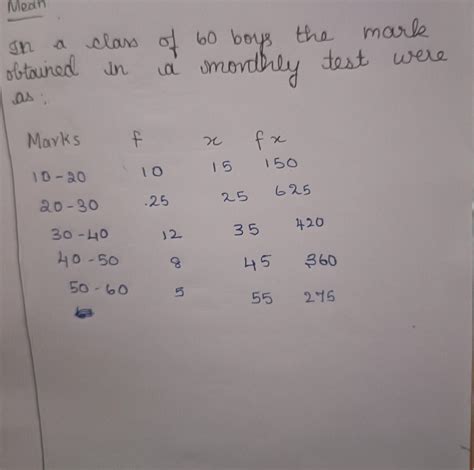 Mean
In a class of 60 boys the mark
obtained in a monthly test were
as :
Marks f x fx
10-20 10 15 150
20-30 25 25 625
30-40 12 35 420
40-50 8 45 360
50-60 5 55 275